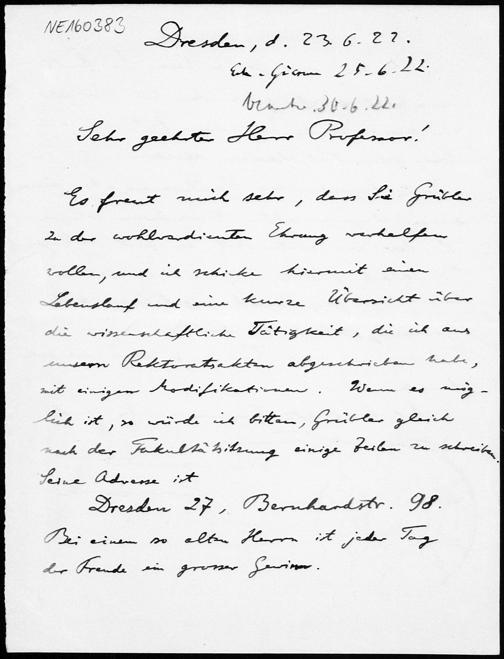 NE160383
Dresden, d. 23.6.22.
25.6.22.
30.6.22.
Sehr geehrter Herr Professor!
Es freut mich sehr, dass Sie Grübler
zu der wohlverdienten Ehrung verhelfen
wollen, und ich schicke hiermit einen
Lebenslauf und eine kurze Übersicht über
die wissenschaftliche Tätigkeit, die ich aus
unsern Rektoratsakten abgeschrieben habe,
mit einigen Modifikationen. Wenn es mög-
lich ist, so würde ich bitten, Grübler gleich
nach der Fakultätssitzung einige Zeilen zu schreiben.
Seine Adresse ist
Dresden 27, Bernhardstr. 98.
Bei einem so alten Herrn ist jeder Tag
der Freude ein grosser Gewinn.